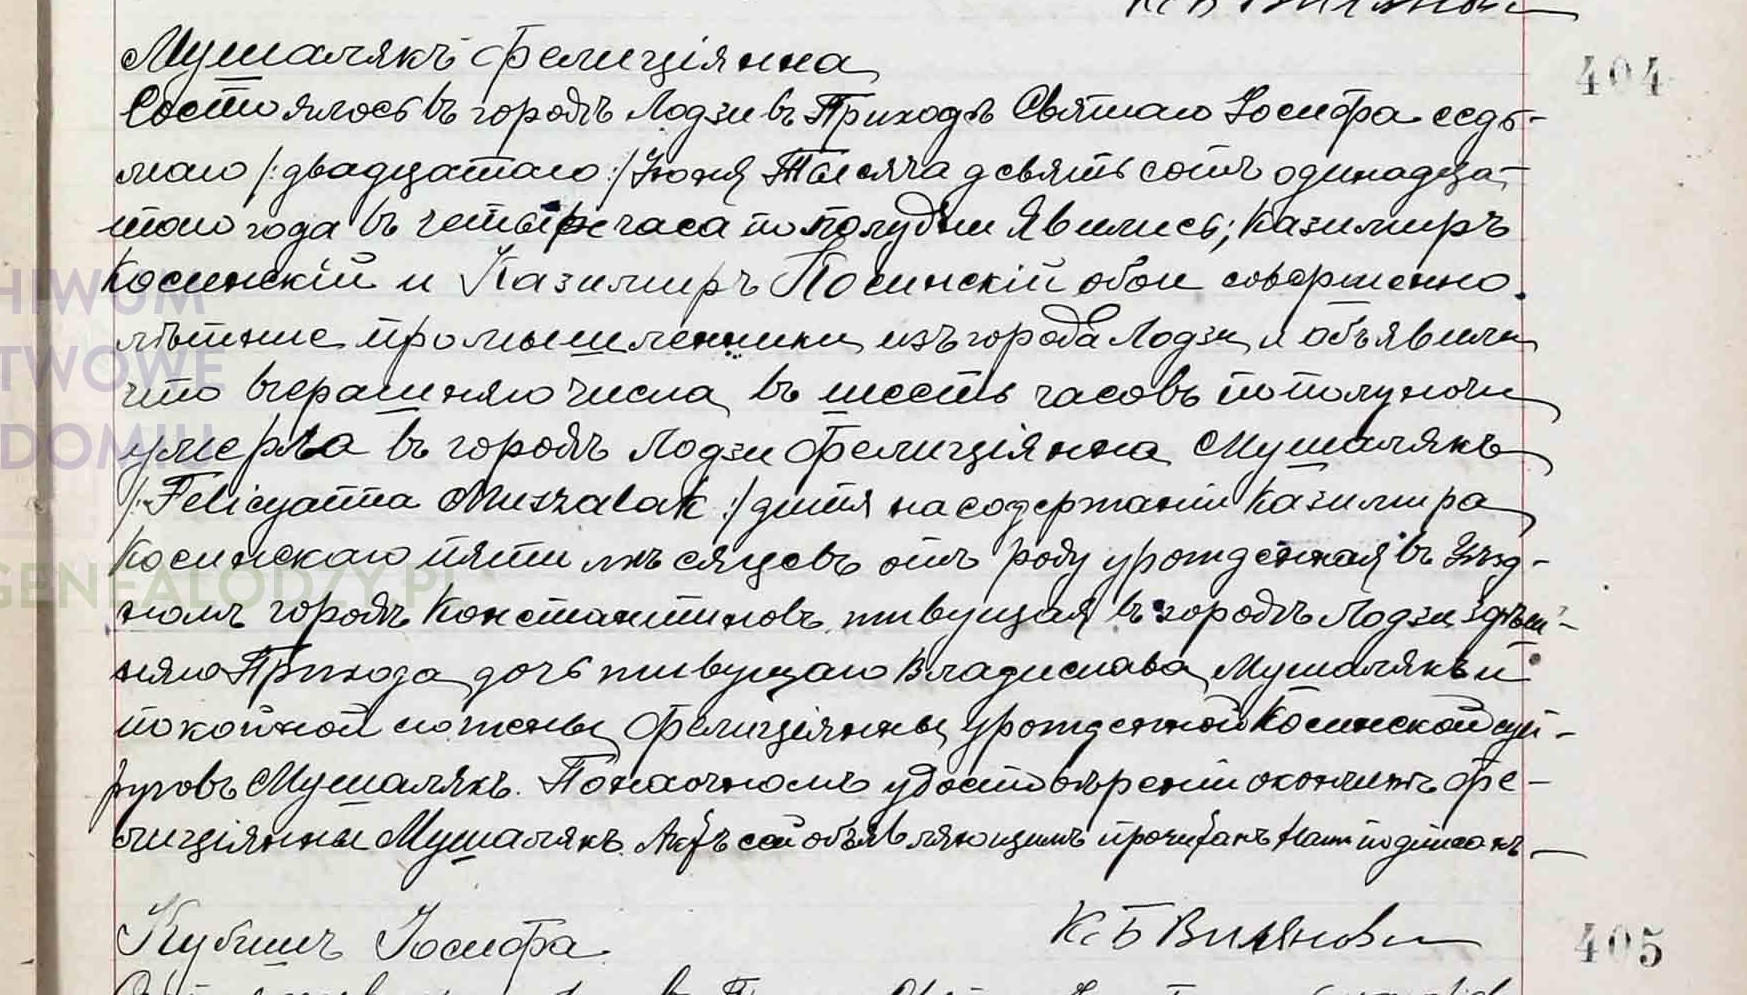 К. Б. Вилянов
Мушалякъ Фелиціянна
404
Состоялось въ городѣ Лодзи въ Приходѣ Святаго Іосифа седь-
маго /: двадцатаго :/ Іюня Тысяча девятьсотъ одинадца-
таго года въ четыре часа по полудни Явились; Казимиръ
Косинскій и Казимиръ Косинскій обои совершенно
лѣтніе промышленники изъ города Лодзи и объявили
что вчерашняго числа въ шесть часовъ по полуночи
умерла въ городѣ Лодзи Фелиціянна Мушалякъ
/: Felicyanna Muszalak :/ дитя на содержаніи Казимира
Косинскаго пяти мѣсяцевъ отъ роду урожденная въ Уѣзд-
номъ городѣ Константиновѣ живущая въ городѣ Лодзи здѣш-
няго Прихода дочь живущаго Владислава Мушалякъ и
покойной его жены Фелиціянны урожденной Косинской суп-
руговъ Мушалякъ. По наочномъ удостовѣреніи о кончинѣ Фе-
лиціянны Мушалякъ Актъ сей объявляющимъ прочитанъ Нами подписанъ
К. Б. Вилянов
Кубишъ Іосифа
405
HIWUM
TWOWE
DOMIU
GENEALODZY.PL